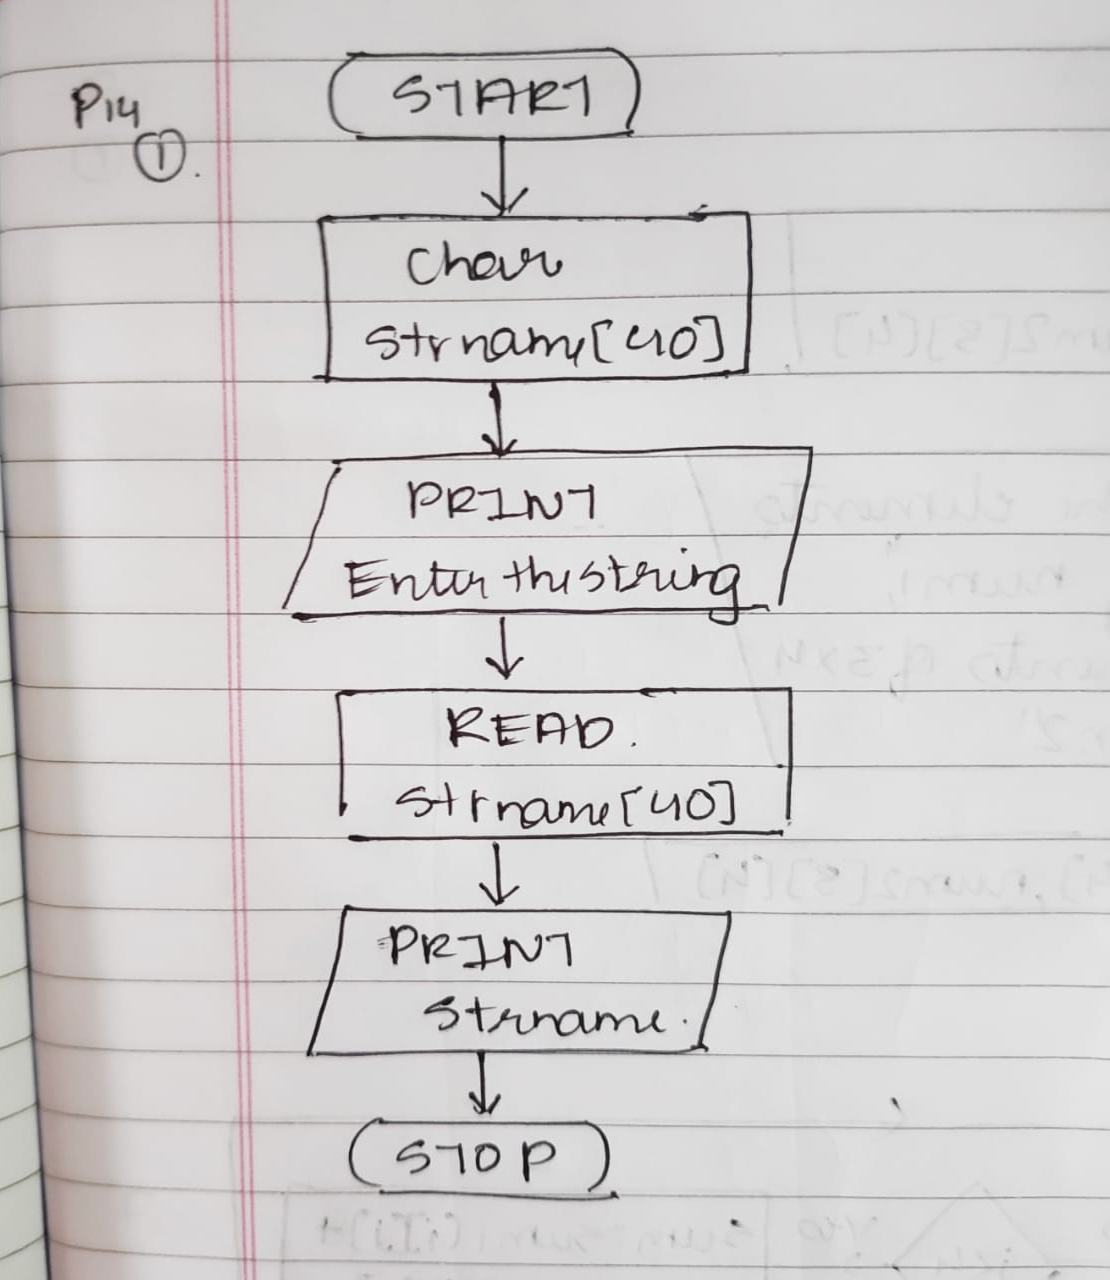 P14
①.
START
Char
Strname[40]
PRINT
Enter the string
READ.
Strname[40]
PRINT
Strname.
STOP